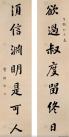 欲過叔度留終日
須信淵明是可人